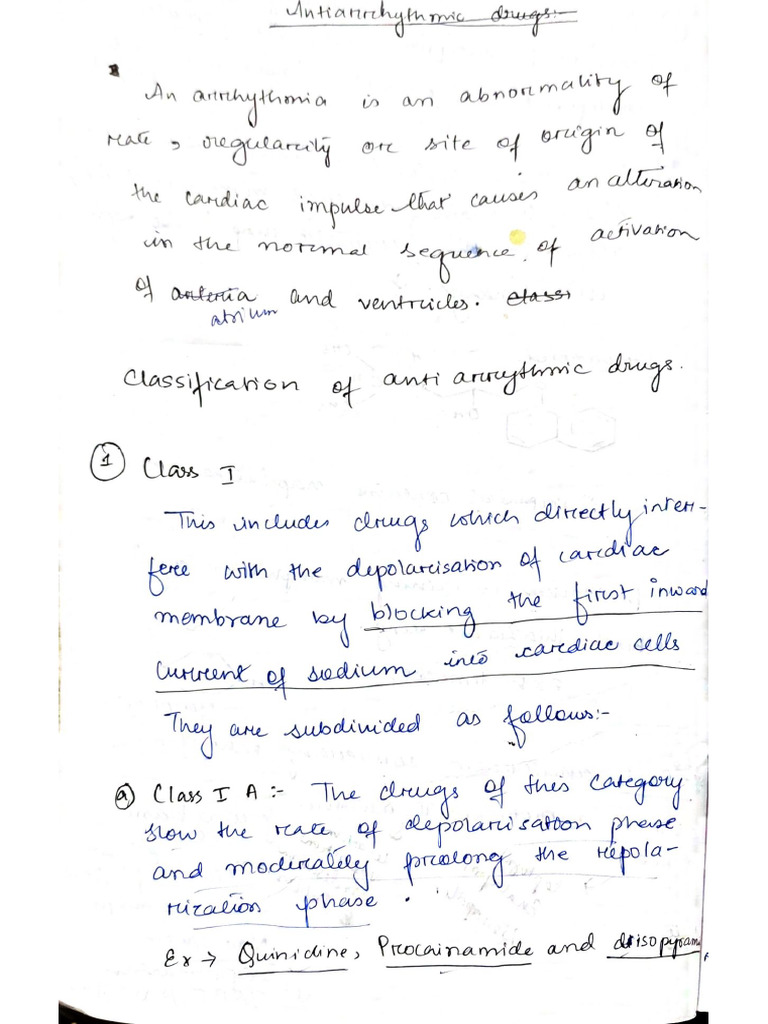 Antiarrhythmic drugs:-
An arrhythmia is an abnormality of
rate, regularity or site of origin of
the cardiac impulse that causes an alteration
in the normal sequence of activation
of arteria and ventricles. class
atrium
Classification of anti arrythmic drugs.
1 Class I
This includes drugs which directly inter-
fere with the depolarisation of cardiac
membrane by blocking the first inward
current of sodium into cardiac cells
They are subdivided as follows:-
a) Class I A:- The drugs of this category
slow the rate of depolarisation phase
and moderately prolong the repola-
rization phase.
Ex → Quinidine, Procainamide and disopyram